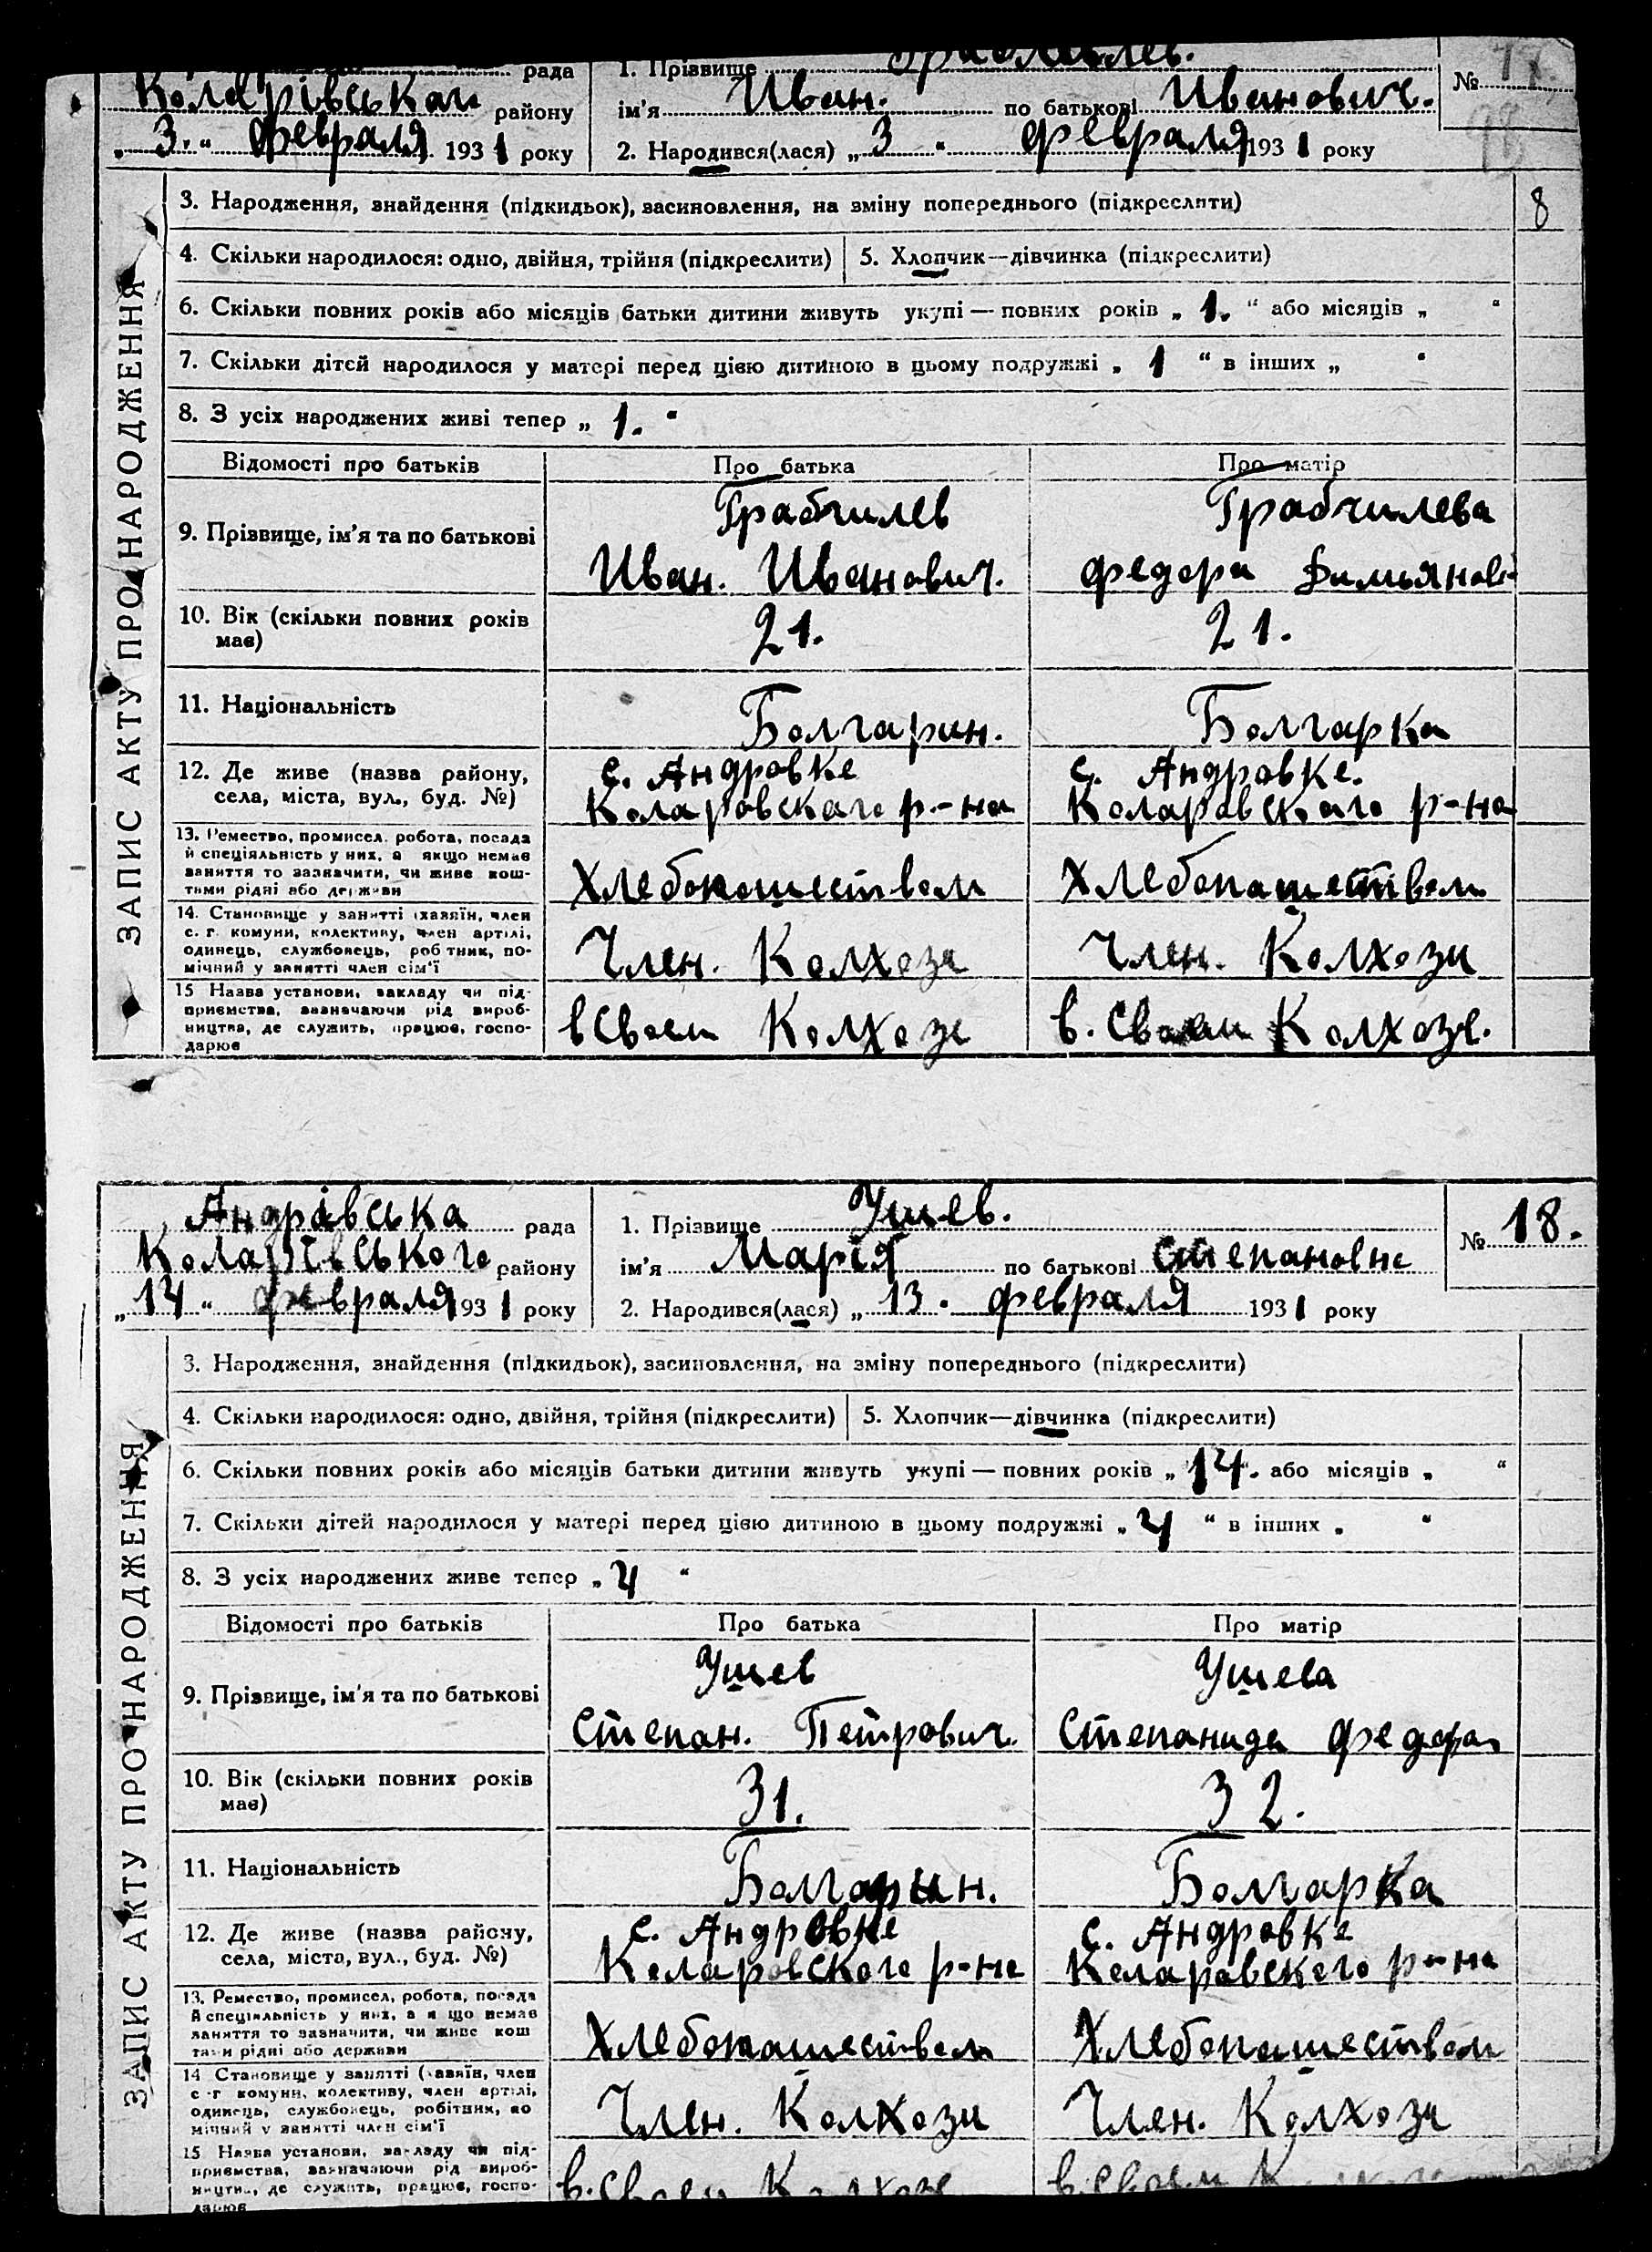 рада
Коларівськаи району
„ 3. “ февраля 1931 року
1. Прізвище
ім'я Иван. по батькові Иванович.
2. Народився(лася) „ 3 “ февраля 1931 року
№
3. Народження, знайдення (підкидьок), засиновлення, на зміну попереднього (підкреслити)
8
4. Скільки народилося: одно, двійня, трійня (підкреслити)
5. Хлопчик—дівчинка (підкреслити)
6. Скільки повних років або місяців батьки дитини живуть укупі — повних років „ 1. “ або місяців „ “
7. Скільки дітей народилося у матері перед цією дитиною в цьому подружжі „ 1 “ в інших „ “
8. З усіх народжених живі тепер „ 1. “
Відомості про батьків
Про батька
Про матір
9. Прізвище, ім'я та по батькові
Грабчилев
Иван. Иванович.
Грабчилева
Федора
10. Вік (скільки повних років
має)
21.
21.
11. Національність
Болгарин.
Болгарка
12. Де живе (назва району,
села, міста, вул., буд. №)
с. Андровке
Коларовскаго р-на
с. Андровке.
Коларовскаго р-на
13. Ремество, промисел, робота, посада
й спеціяльність у них, а якщо немає
заняття то зазначити, чи живе кош-
тами рідні або держави
Хлебопашеством
Хлебопашеством
14. Становище у занятті (хазяїн, член
с. г. комуни, колективу, член артілі,
одинець, службовець, робітник, по-
мічний у занятті член сім'ї
Член. Колхоза
Член. Колхозу
15 Назва установи, закладу чи під-
приємства, зазначаючи рід вироб-
ництва, де служить, працює, госпо-
дарює
в своем Колхозе
в. своем Колхозе.
ЗАПИС АКТУ ПРО НАРОДЖЕННЯ
Андрівська рада
Коларівського району
„ 14 “ февраля 1931 року
1. Прізвище Ушев.
ім'я Марія по батькові Степановна
2. Народився(лася) „ 13 . февраля 1931 року
№ 18.
3. Народження, знайдення (підкидьок), засиновлення, на зміну попереднього (підкреслити)
4. Скільки народилося: одно, двійня, трійня (підкреслити)
5. Хлопчик—дівчинка (підкреслити)
6. Скільки повних років або місяців батьки дитини живуть укупі — повних років „ 14. або місяців „ “
7. Скільки дітей народилося у матері перед цією дитиною в цьому подружжі „ 4 “ в інших „ “
8. З усіх народжених живе тепер „ 4 “
Відомості про батьків
Про батька
Про матір
9. Прізвище, ім'я та по батькові
Ушев
Степан. Петрович.
Ушева
Степанида
10. Вік (скільки повних років
має)
31.
32.
11. Національність
Болгарин.
Болгарка
12. Де живе (назва району,
села, міста, вул., буд. №)
с. Андровке
Коларовского р-на
с. Андровке
Коларовского р-на
13. Ремество, промисел, робота, посада
й спеціяльність у них, а якщо немає
заняття то зазначити, чи живе кош
тами рідні або держави
Хлебопашеством
Хлебопашеством
14 Становище у занятті (хазяїн, член
с г комуни, колективу, член артілі,
одинець, службовець, робітник, по
мічний у занятті член сім'ї
Член. Колхозу
Член. Колхоза
15 Назва установи, закладу чи під-
приємства, зазначаючи рід вироб-
ництва, де служить, працює, госпо-
дарює
в. своем Колхозе
в. своем
ЗАПИС АКТУ ПРО НАРОДЖЕННЯ